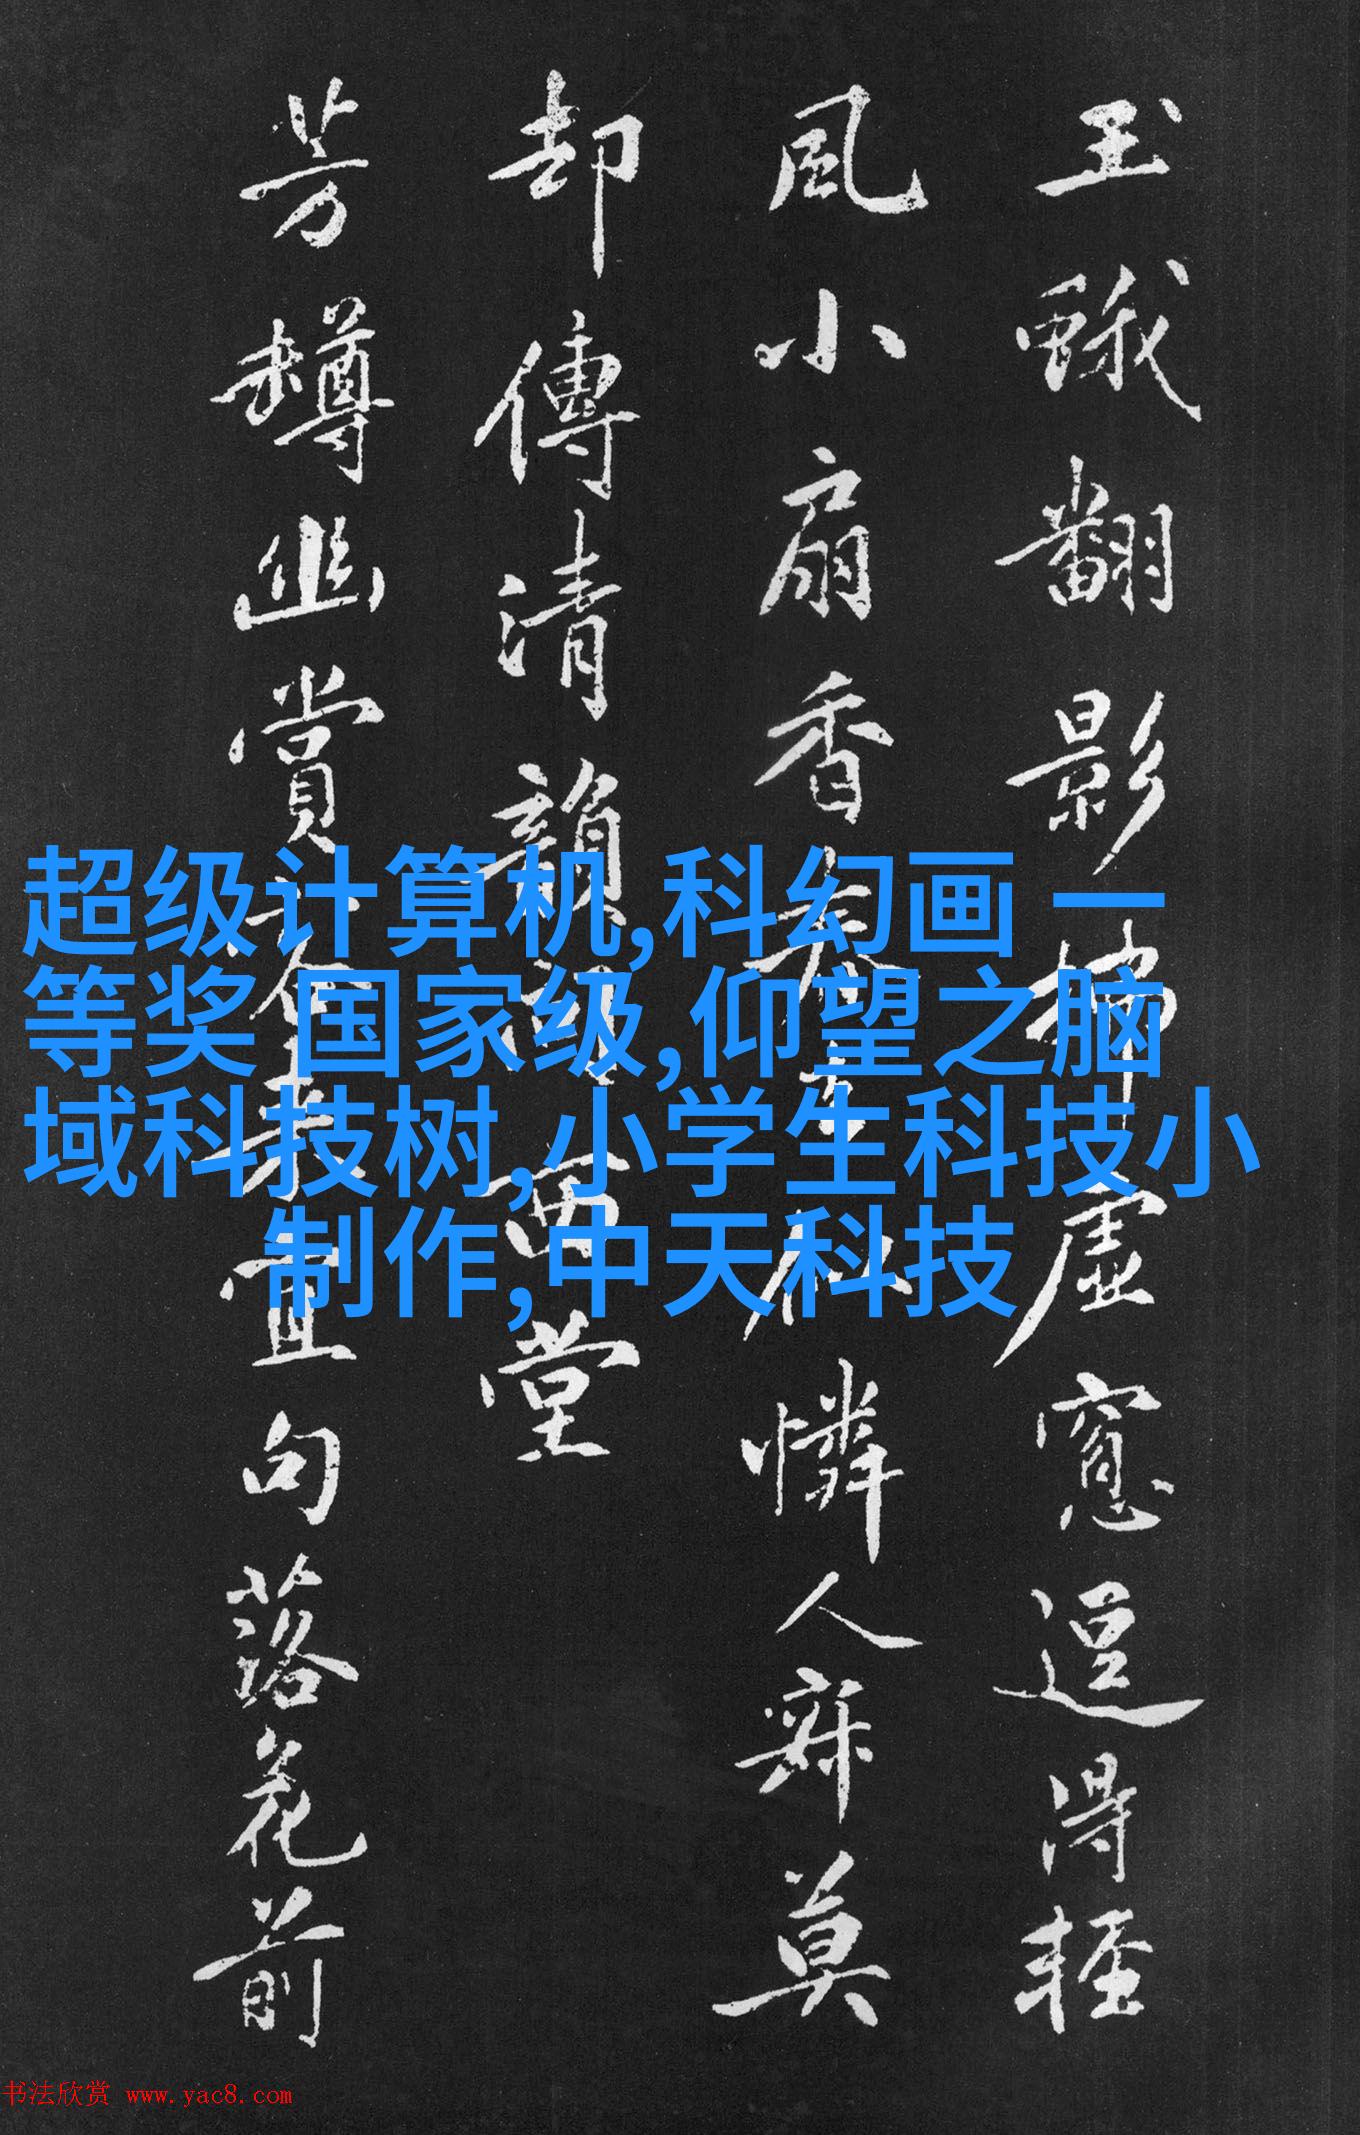 玉蛾翻影虛窓逗得輕
風小扇香似憐人寐莫
却傳清韻西堂
芳樽幽賞來置句落花前
超级计算机,科幻画 一
等奖 国家级,仰望之脑
域科技树,小学生科技小
制作,中天科技
书法欣赏 www.yac8.com